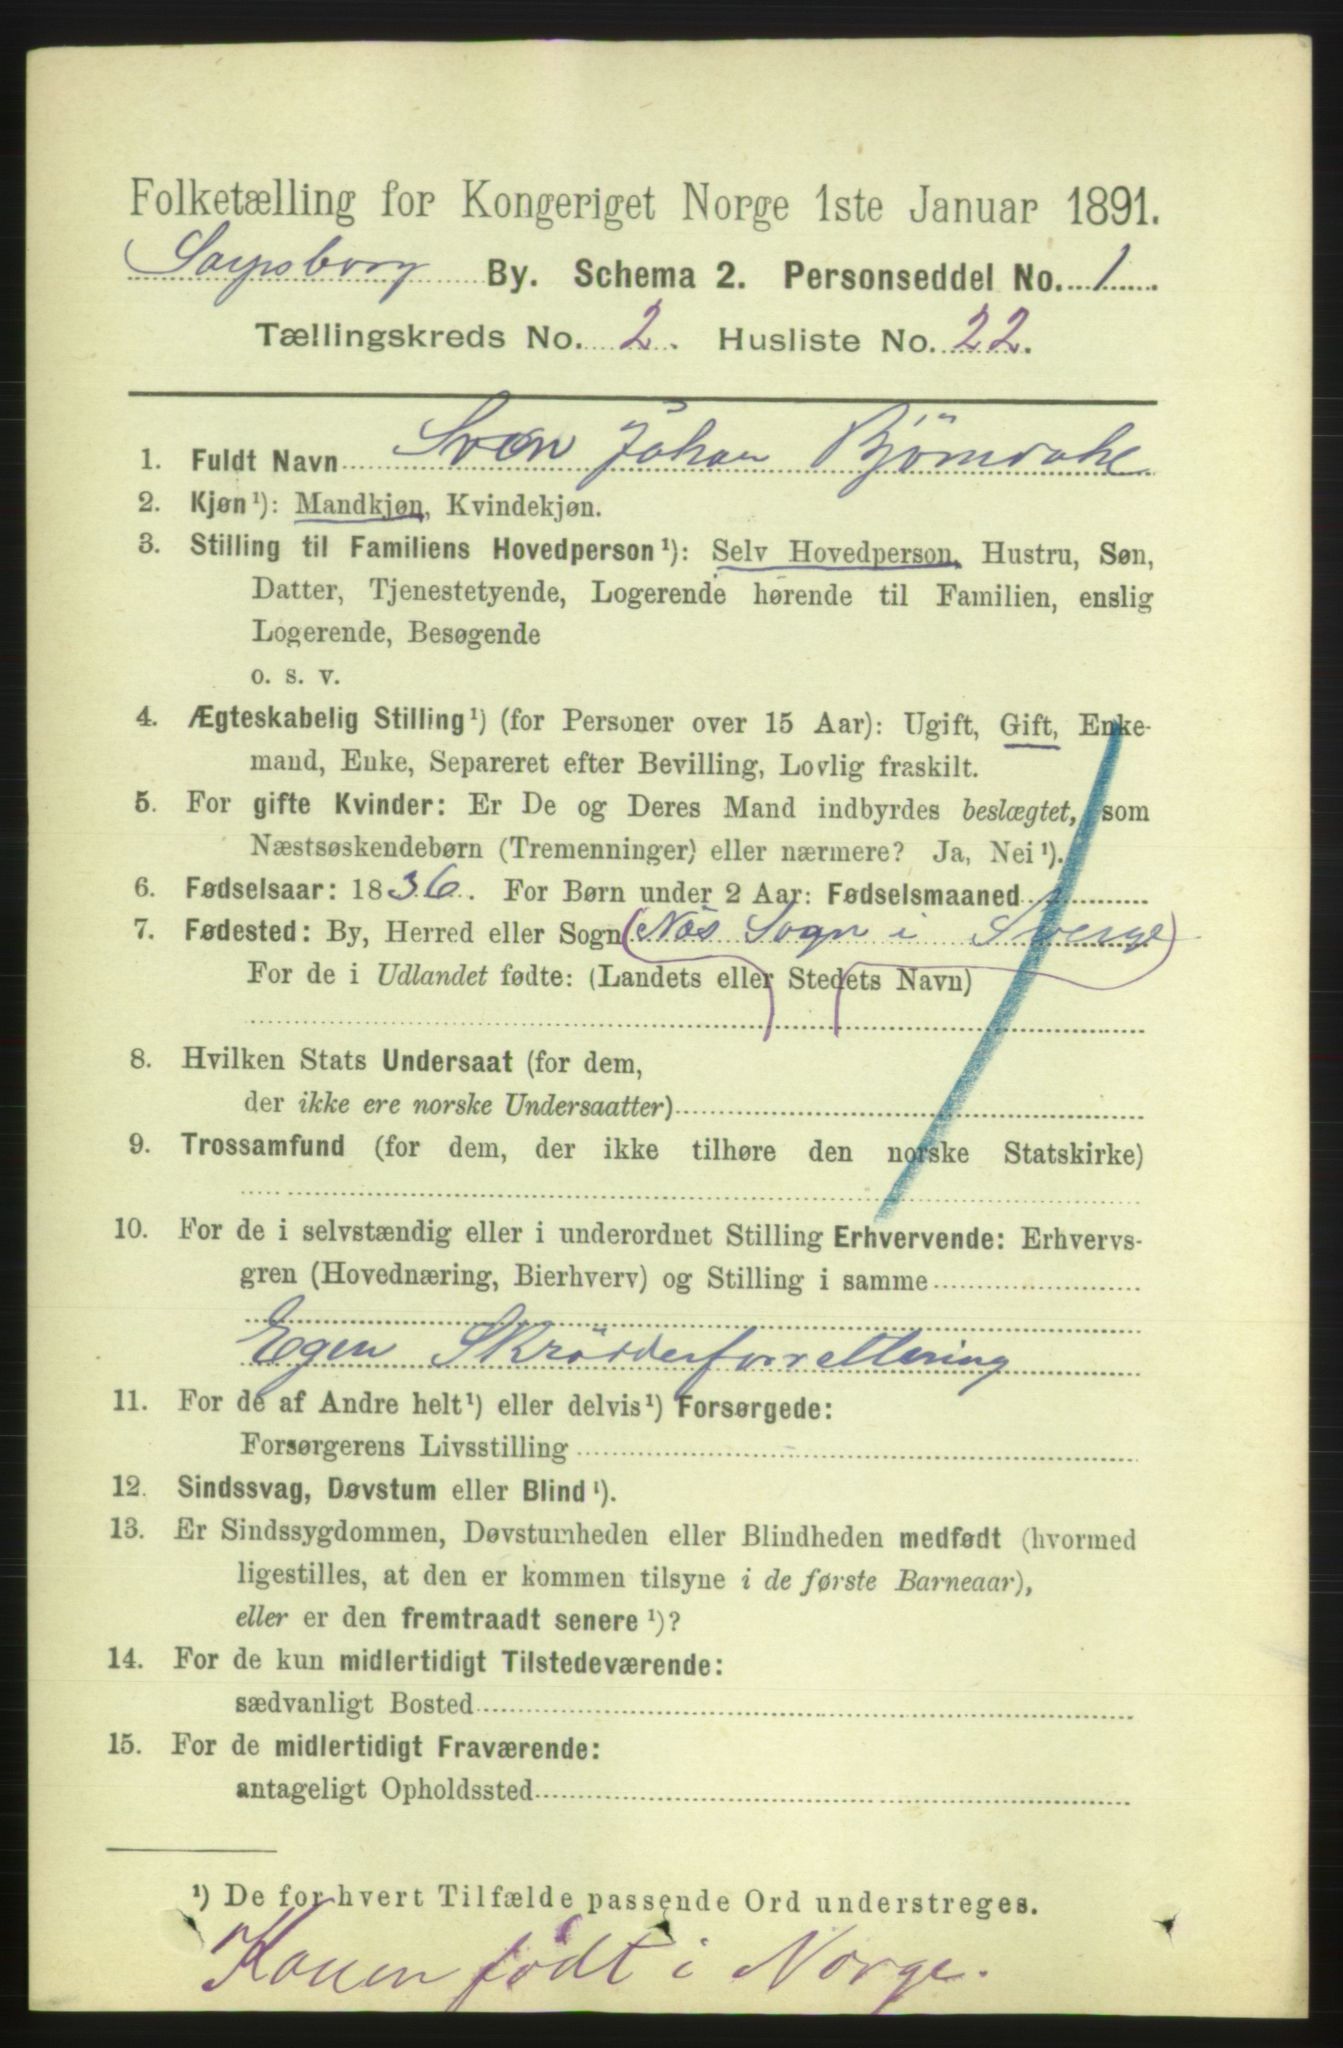 Folketælling for Kongeriget Norge 1ste Januar 1891.
Sarpsborg By. Schema 2. Personseddel No. 1
Tællingskreds No. 2. Husliste No. 22.
1. Fuldt Navn Sven Johan Björndahl
2. Kjøn¹): Mandkjøn, Kvindekjøn.
3. Stilling til Familiens Hovedperson¹): Selv Hovedperson, Hustru, Søn,
Datter, Tjenestetyende, Logerende hørende til Familien, enslig
Logerende, Besøgende
o. s. v.
4. Ægteskabelig Stilling¹) (for Personer over 15 Aar): Ugift, Gift, Enke-
mand, Enke, Separeret efter Bevilling, Lovlig fraskilt.
5. For gifte Kvinder: Er De og Deres Mand indbyrdes beslægtet, som
Næstsøskendebørn (Tremenninger) eller nærmere? Ja, Nei¹).
6. Fødselsaar: 1836. For Børn under 2 Aar: Fødselsmaaned
7. Fødested: By, Herred eller Sogn (Nös Sogn i Sverge)
For de i Udlandet fødte: (Landets eller Stedets Navn)
8. Hvilken Stats Undersaat (for dem,
der ikke ere norske Undersaatter)
9. Trossamfund (for dem, der ikke tilhøre den norske Statskirke)
10. For de i selvstændig eller i underordnet Stilling Erhvervende: Erhvervs-
gren (Hovednæring, Bierhverv) og Stilling i samme
Egen Skrödderforrettning
11. For de af Andre helt¹) eller delvis¹) Forsørgede:
Forsørgerens Livsstilling
12. Sindssvag, Døvstum eller Blind¹).
13. Er Sindssygdommen, Døvstumheden eller Blindheden medfødt (hvormed
ligestilles, at den er kommen tilsyne i de første Barneaar),
eller er den fremtraadt senere¹)?
14. For de kun midlertidigt Tilstedeværende:
sædvanligt Bosted
15. For de midlertidigt Fraværende:
antageligt Opholdssted
¹) De for hvert Tilfælde passende Ord understreges.
Konen födt i Norge.